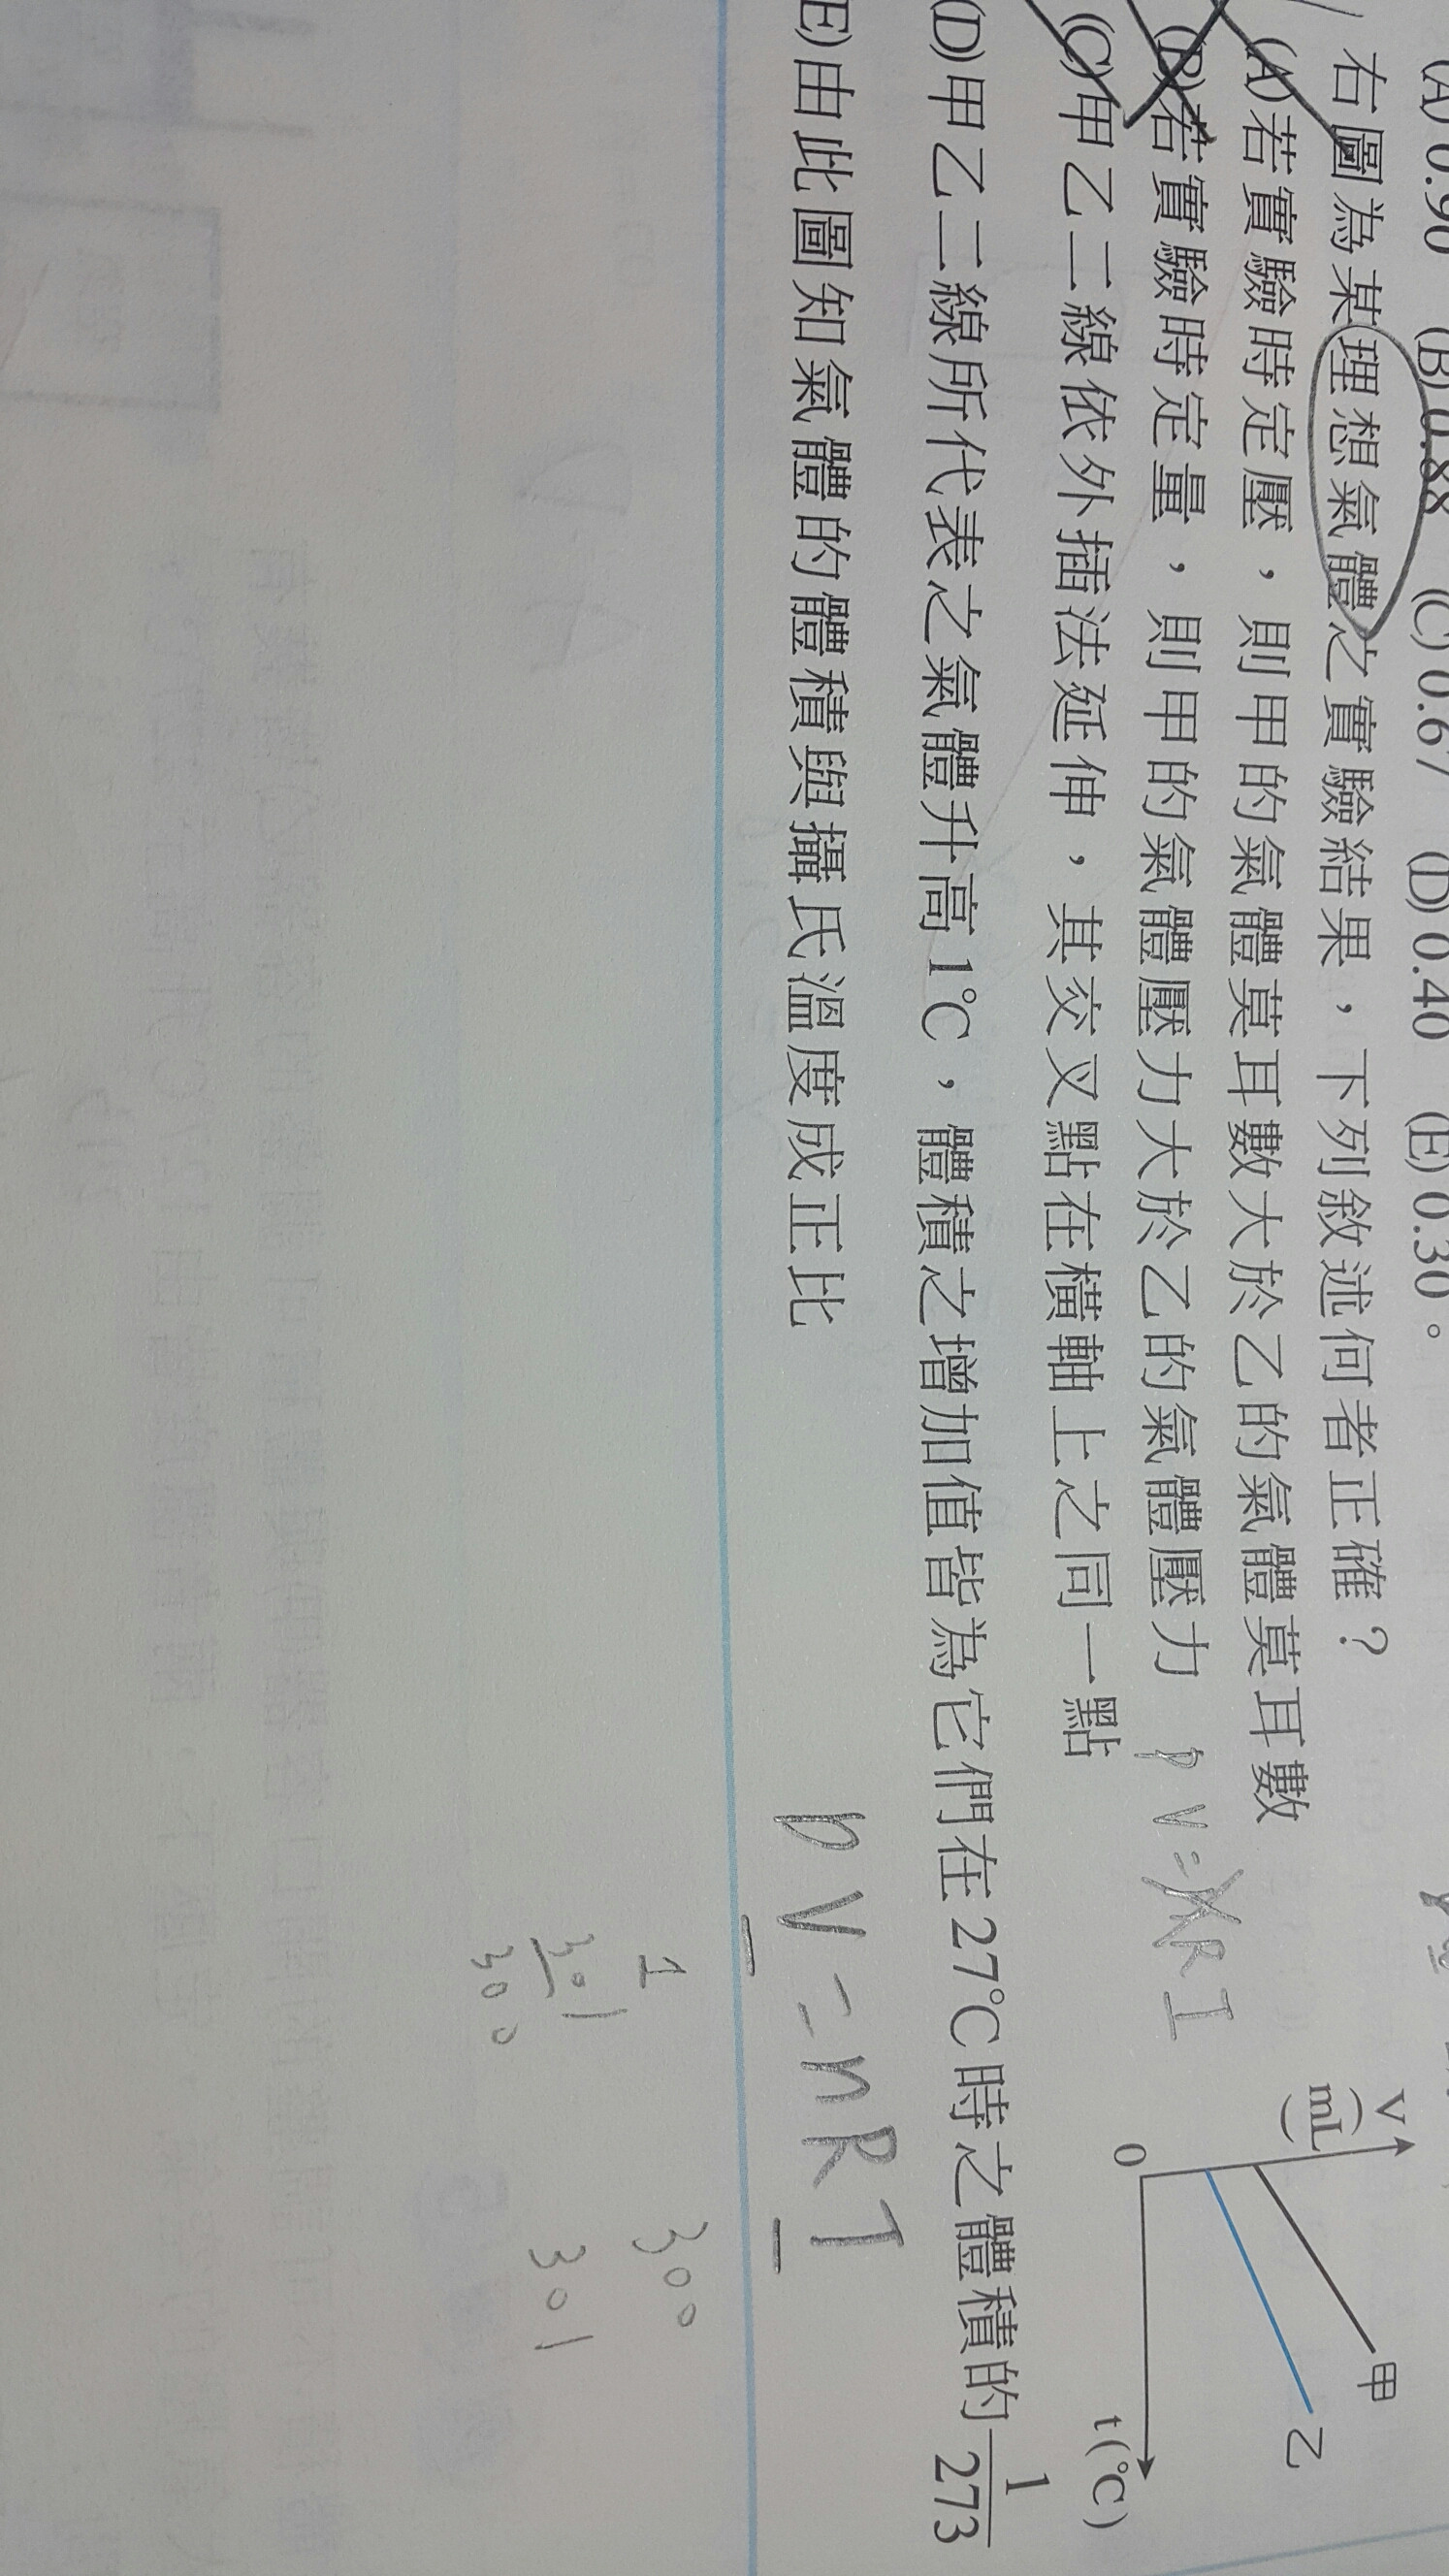 (A) 0.90 (B) 0.88 (C) 0.67 (D) 0.40 (E) 0.30。
右圖為某理想氣體之實驗結果，下列敘述何者正確？
(A)若實驗時定壓，則甲的氣體莫耳數大於乙的氣體莫耳數
(B)若實驗時定量，則甲的氣體壓力大於乙的氣體壓力
PV=nRT
(C)甲乙二線依外插法延伸，其交叉點在橫軸上之同一點
(D)甲乙二線所代表之氣體升高1℃，體積之增加值皆為它們在27℃時之體積的1/273
(E)由此圖知氣體的體積與攝氏溫度成正比
V
(mL)
甲
乙
0
t(℃)
PV=nRT
1 300
301 301
300